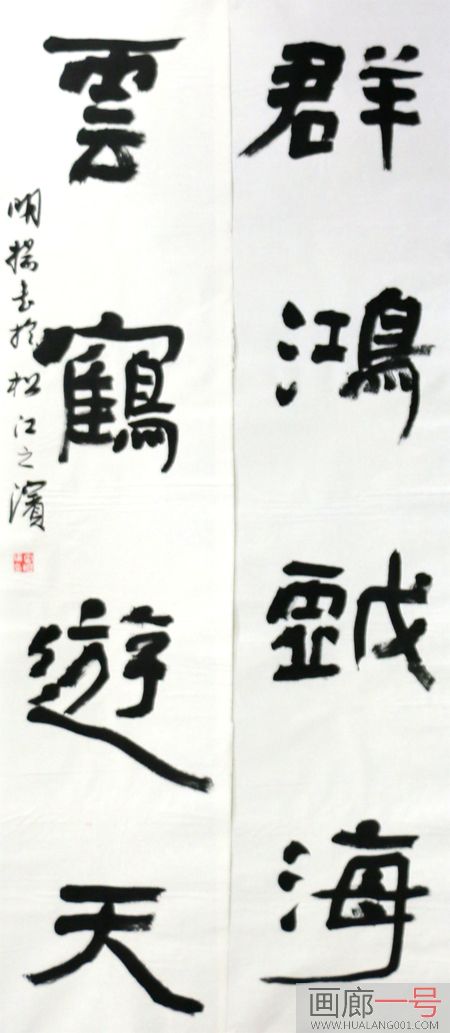 群鴻戲海
雲鶴遊天
明揚书於松江之濱
画廊一号
WWW.HUALANG001.COM